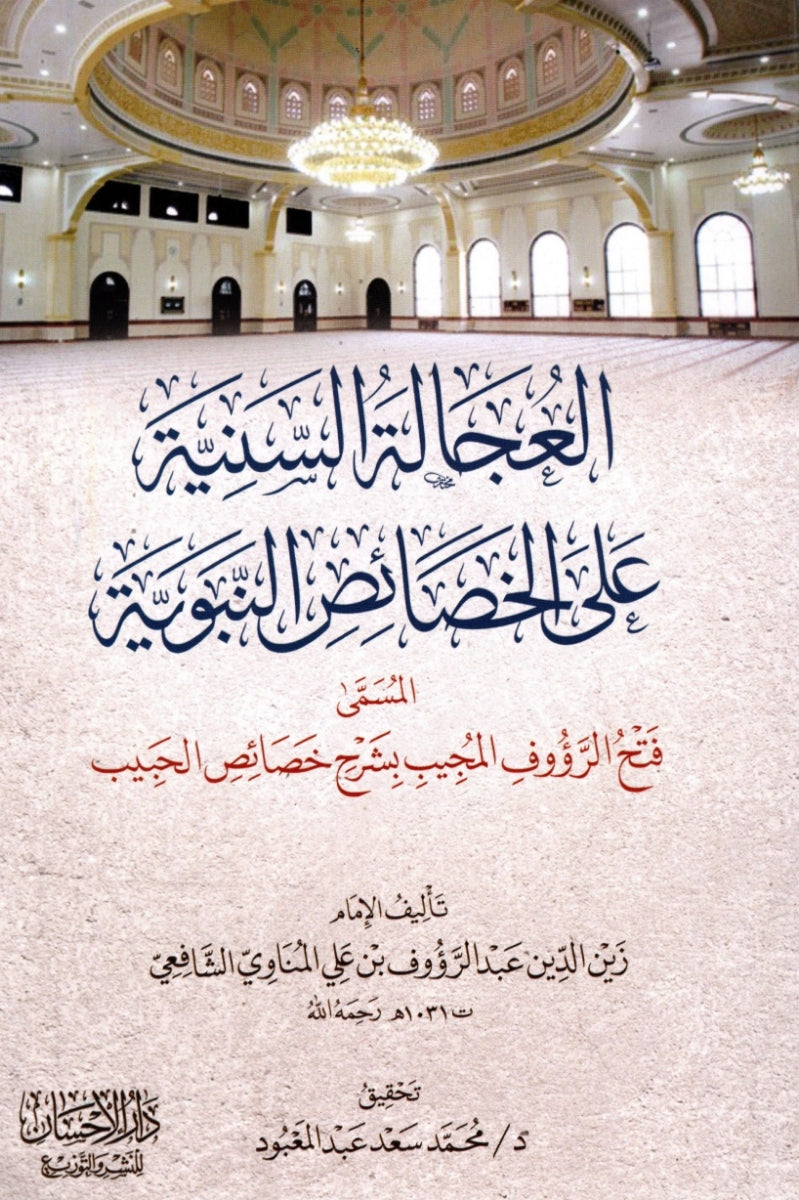 العُجَالَةُ السَّنِيَّة
عَلَى الخَصَائِصِ النَّبَوِيَّة
المُسَمَّى
فَتْحُ الرَّؤُوفِ المُجِيبِ بِشَرْحِ خَصَائِصِ الحَبِيب
تَأْلِيفُ الإِمَام
زَيْن الدِّين عَبْد الرَّؤُوف بْن عَلِي المُنَاوِيّ الشَّافِعِيّ
ت ١٠٣١هـ رَحِمَهُ اللهُ
تَحْقِيقُ
د/ مُحَمَّد سَعْد عَبْد المَعْبُود
دَارُ الإِحْسَان
لِلنَّشْرِ وَالتَّوْزِيع